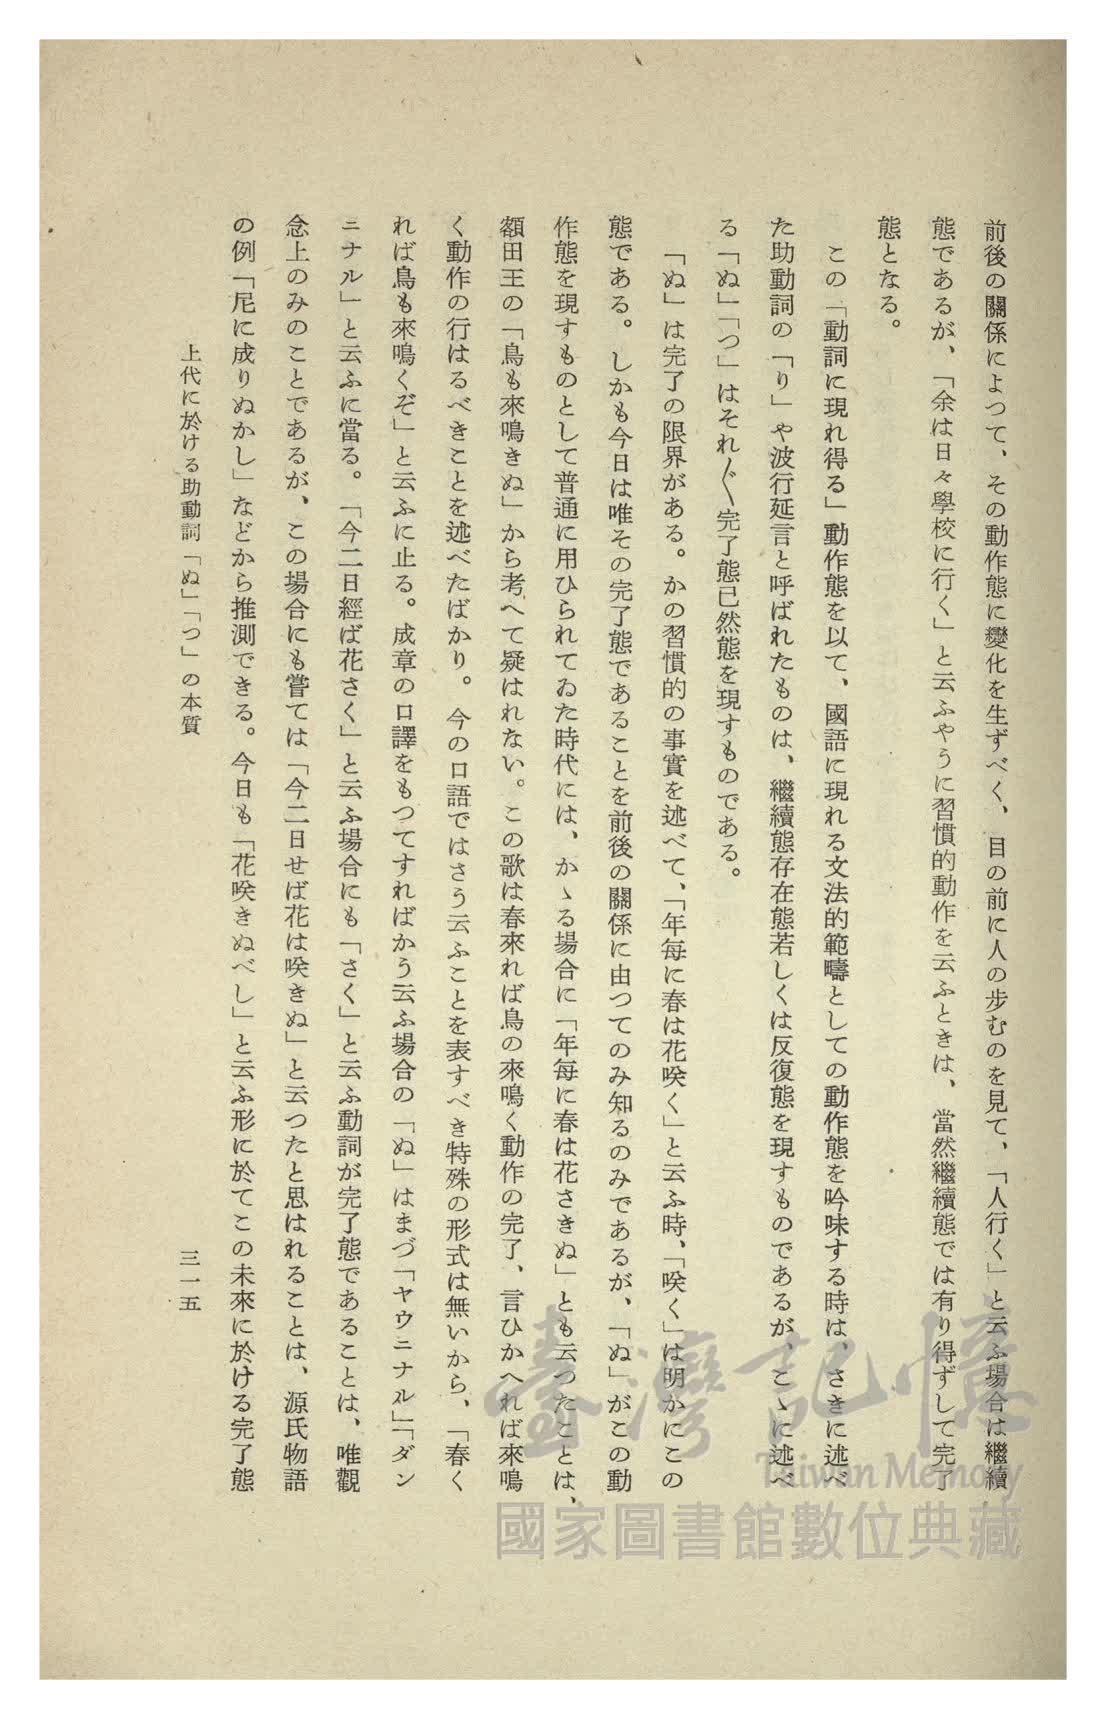 前後の關係によつて、その動作態に變化を生ずべく、目の前に人の步むのを見て、「人行く」と云ふ場合は繼續
態であるが、「余は日々學校に行く」と云ふやうに習慣的動作を云ふときは、當然繼續態では有り得ずして完了
態となる。
この「動詞に現れ得る」動作態を以て、國語に現れる文法的範疇としての動作態を吟味する時は、さきに述べ
た助動詞の「り」や波行延言と呼ばれたものは、繼續態存在態若しくは反復態を現すものであるが、こゝに述べ
る「ぬ」「つ」はそれ〴〵完了態已然態を現すものである。
「ぬ」は完了の限界がある。かの習慣的の事實を述べて、「年每に春は花咲く」と云ふ時、「咲く」は明かにこの
態である。しかも今日は唯その完了態であることを前後の關係に由つてのみ知るのみであるが、「ぬ」がこの動
作態を現すものとして普通に用ひられてゐた時代には、かゝる場合に「年每に春は花さきぬ」とも云つたことは、
額田王の「鳥も來鳴きぬ」から考へて疑はれない。この歌は春來れば鳥の來鳴く動作の完了、言ひかへれば來鳴
く動作の行はるべきことを述べたばかり。今の口語ではさう云ふことを表すべき特殊の形式は無いから、「春く
れば鳥も來鳴くぞ」と云ふに止る。成章の口譯をもつてすればかう云ふ場合の「ぬ」はまづ「ヤウニナル」「ダン
ニナル」と云ふに當る。「今二日經ば花さく」と云ふ場合にも「さく」と云ふ動詞が完了態であることは、唯觀
念上のみのことであるが、この場合にも嘗ては「今二日せば花は咲きぬ」と云つたと思はれることは、源氏物語
の例「尼に成りぬかし」などから推測できる。今日も「花咲きぬべし」と云ふ形に於てこの未來に於ける完了態
上代に於ける助動詞「ぬ」「つ」の本質
三一五
臺灣記憶
Taiwan Memory
國家圖書館數位典藏